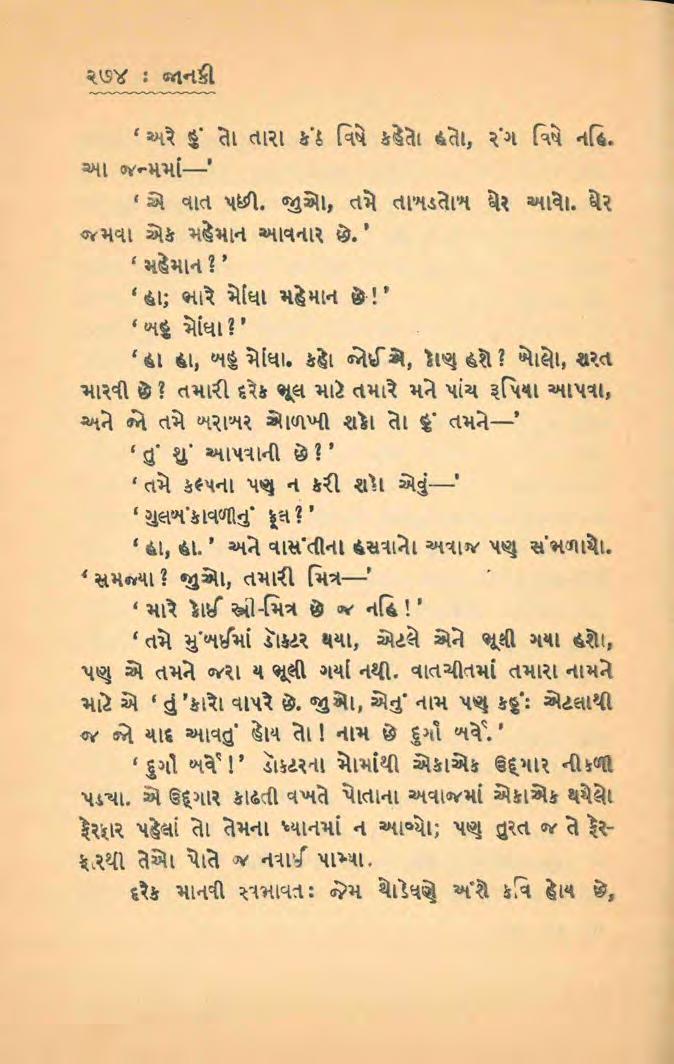 ૨૭૪ : જાનકી
‘ અરે હું તો તારા કંઠ વિષે કહેતો હતો, રંગ વિષે નહિ.
આ જન્મમાં—’
‘ એ વાત પછી. જુઓ, તમે તાબડતોબ ઘેર આવો. ઘેર
જમવા એક મહેમાન આવનાર છે.’
‘ મહેમાન ?’
‘ હા; ભારે મોંઘા મહેમાન છે !’
‘ બહુ મોંઘા ?’
‘ હા હા, બહુ મોંઘા. કહો જોઈ એ, કોણ હશે ? બોલો, શરત
મારવી છે ? તમારી દરેક ભૂલ માટે તમારે મને પાંચ રૂપિયા આપવા,
અને જો તમે બરાબર ઓળખી શકો તો હું તમને—’
‘ તું શું આપવાની છે ?’
‘ તમે કલ્પના પણ ન કરી શકો એવું—’
‘ ગુલબંકાવળીનું ફૂલ ?’
‘ હા, હા.’ અને વાસંતીના હસવાનો અવાજ પણ સંભળાયો.
‘ સમજ્યા ? જુઓ, તમારી મિત્ર—’
‘ મારે કોઈ સ્ત્રી-મિત્ર છે જ નહિ !’
‘ તમે મુંબઈમાં ડૉક્ટર થયા, એટલે એને ભૂલી ગયા હશો,
પણ એ તમને જરા ય ભૂલી ગયાં નથી. વાતચીતમાં તમારા નામને
માટે એ ‘ તું ’કારો વાપરે છે. જુઓ, એનું નામ પણ કહું: એટલાથી
જ જો યાદ આવતું હોય તો ! નામ છે દુર્ગા બર્વે.’
‘ દુર્ગા બર્વે !’ ડૉક્ટરના મોમાંથી એકાએક ઉદ્‌ગાર નીકળી
પડ્યા. એ ઉદ્‌ગાર કાઢતી વખતે પોતાના અવાજમાં એકાએક થયેલો
ફેરફાર પહેલાં તો તેમના ધ્યાનમાં ન આવ્યો; પણ તુરત જ તે ફેર-
ફારથી તેઓ પોતે જ નવાઈ પામ્યા.
દરેક માનવી સ્વભાવતઃ જેમ થોડેઘણે અંશે કવિ હોય છે,